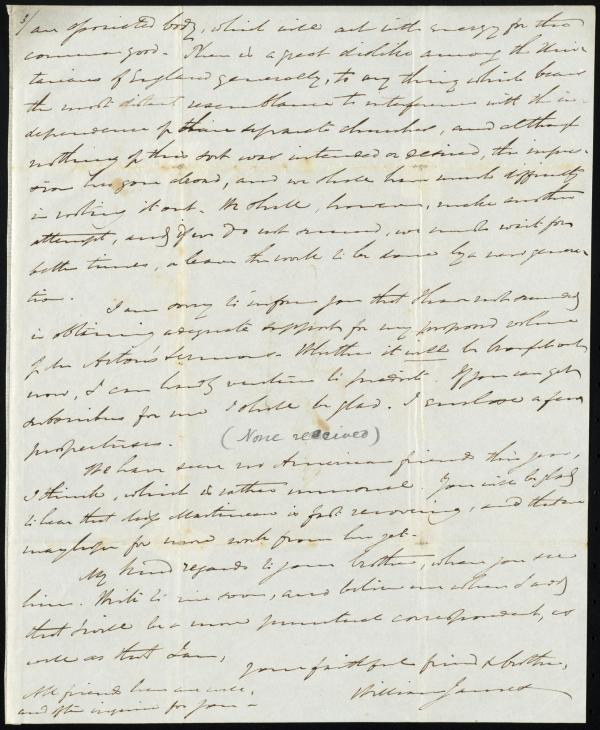 3/ an associated body, which will act with energy for the
common good. There is a great dislike among the Uni-
tarians of England generally, to any thing which bears
the most distant resemblance to interference with the in-
dependence of their separate churches, and although
nothing of this sort was intended or desired, the impres-
sion has gone abroad, and we shall have much difficulty
in rooting it out. We shall, however, make another
attempt, and if we do not succeed, we must wait for
better times, or leave the work to be done by a new genera-
tion.
I am sorry to inform you that I have not succeeded
in obtaining adequate support for my proposed volume
of Mr Acton's Sermons. Whether it will be brought out
now, I can hardly venture to predict. If you can get
subscribers for me I shall be glad. I enclose a few
prospectuses.
(None received)
We have seen no American friends this year,
I think, which is rather unusual. You will be glad
to hear that Miss Martineau is fast recovering, and that we
may hope for more work from her yet.
My kind regards to your brother, when you see
him. Write to me soon, and believe me when I add
that I will be a more punctual correspondent, as
well as that I am,
your faithful friend & brother,
William James
All friends here are well,
and often inquire for you.